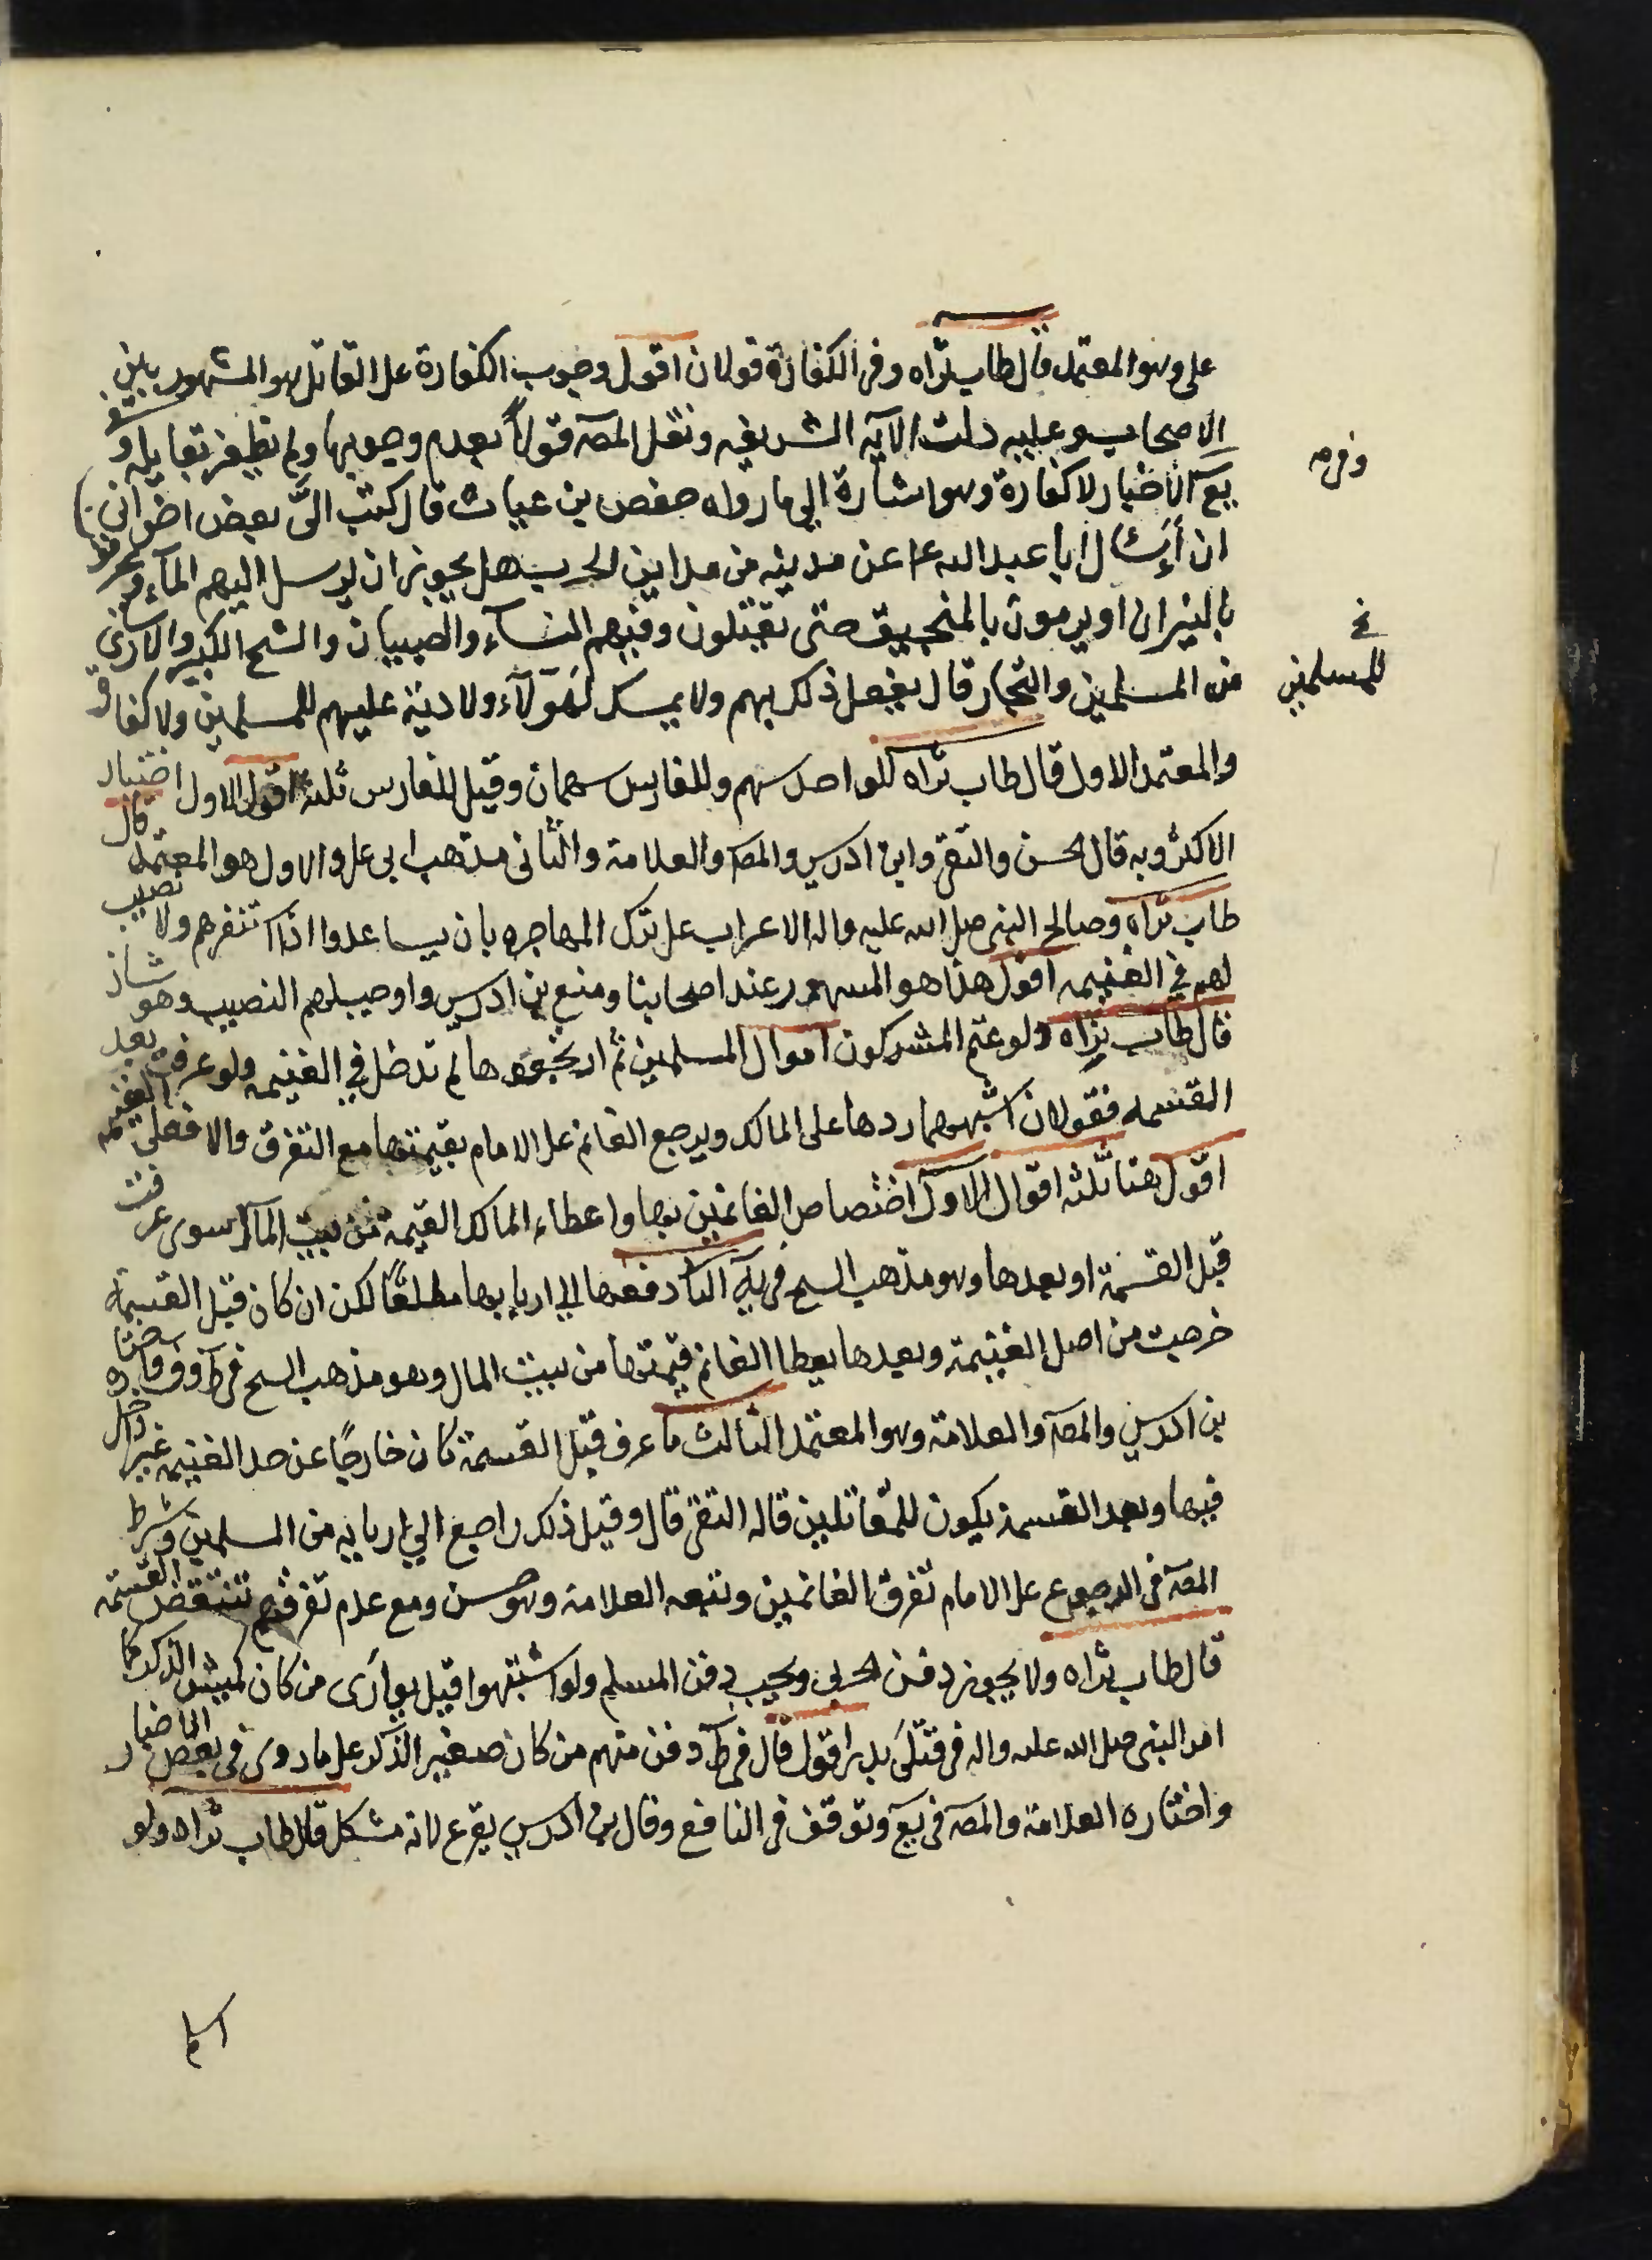 على وهو المعتمد قال طاب ثراه وفي الكفارة قولان اقول وجوب الكفارة على القاتل هو المشهور بين
الاصحاب وعليه دلت الآية الشريفه ونقل المصآ قولاً بعدم وجوبها ولم نظفر بقايله و
يعآ الاخبار لا كفارة وهو اشارة الى ما رواه حفص بن غياث قال كتب الىّ بعض اخوانى
ان أسال ابا عبد الله ع عن مدينه من مداين الحرب هل يجوز ان يرسل اليهم المآء وتحرق
بالنيران او يرمون بالمنجنيق حتى يقتلون وفيهم النسآء والصبيان والشيخ الكبير والاسارى
من المسلمين والتجار قال يفعل ذلك بهم ولا يمسك لهؤلآء ولا دية عليهم للمسلمين ولا كفارة
والمعتمد الاول قال طاب ثراه للواحد سهم وللفارس سهمان وقيل للفارس ثلثة اقول الاول اختيار
الاكثر وبه قال الحسن والتقى وابن ادريس والمصآ والعلامة والثانى مذهب ابى على والاول هو المعتمد قال
طاب ثراه وصالح النبى صلى الله عليه واله الاعراب على ترك المهاجره بان يساعدوا اذا استنفرهم ولا نصيب
لهم في الغنيمه اقول هذا هو المشهور عند اصحابنا ومنع بن ادريس واوجب لهم النصيب وهو شاذ
قال طاب ثراه ولو غنم المشركون اموال المسلمين ثم ارتجعوها لم تدخل في الغنيمه ولو عرفت بعد
القسمه فقولان اشبههما ردها على المالك ويرجع الغانم على الامام بقيمتها مع التفرق والا فعلى الغنيمه
اقول هنا ثلثه اقوال الاول اختصاص الغانمين بها واعطاء المالك القيمة من بيت المآل سوى عرفت
قبل القسمة او بعدها وهو مذهب الشيخ فى يهآ الثآ دفعها الى اربابها مطلقًا لكن ان كان قبل القسمة
خرجت من اصل الغنيمة وبعدها يعطا الغانم قيمتها من بيت المال وهو مذهب الشيخ فى طآ وفآ واختاره
بن ادريس والمصآ والعلامة وهو المعتمد الثالث ما عرف قبل القسمة كان خارجًا عن حد الغنيمه غير داخل
فيها وبعد القسمة يكون للمقاتلين قاله التقى قال وقيل ذلك راجع الى اربابه من المسلمين وشرط
المصآ فى الرجوع على الامام تفرق الغانمين وتبعه العلامة وهو حسن ومع عدم تفرقهم تنتقض القسمه
قال طاب ثراه ولا يجوز دفن الحربى ويجب دفن المسلم ولو اشتبهوا قيل يوارى من كان كميش الذكر كما
امر النبى صلى الله عليه واله فى قتلى بدر اقول قال فى طآ دفن منهم من كان صغير الذكر على ما روى فى بعض الاخبار
واختاره العلامة والمصآ فى يعآ وتوقف فى النافع وقال بن ادريس يقرع لانه مشكل قال طاب ثراه ولو
وفى
خ
للمسلمين
اسلم